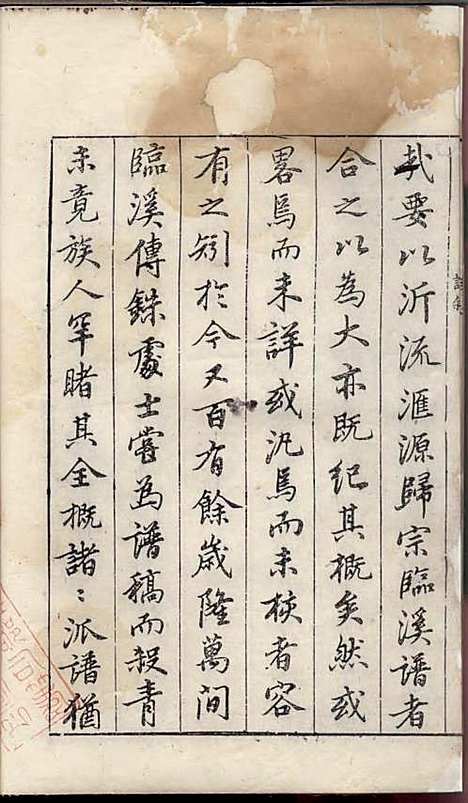 哉要以泝流滙源歸宗臨溪譜者
合之以為大亦既紀其概矣然或
畧焉而未詳或汎焉而未核者容
有之矧於今又百有餘歲隆萬間
臨溪傳錄處士嘗為譜稿而殺青
未竟族人罕睹其全概諸〻派譜猶